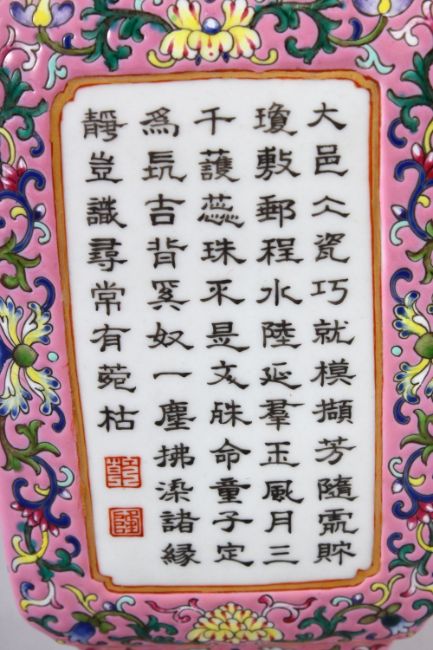 大邑仌瓷巧就模擷芳隨處貯
瓊敷郵程水陸延羣玉風月三
千護蕊珠不是文殊命童子定
為長吉背奚奴一塵拂染諸緣
靜豈識尋常有菀枯
乾
隆